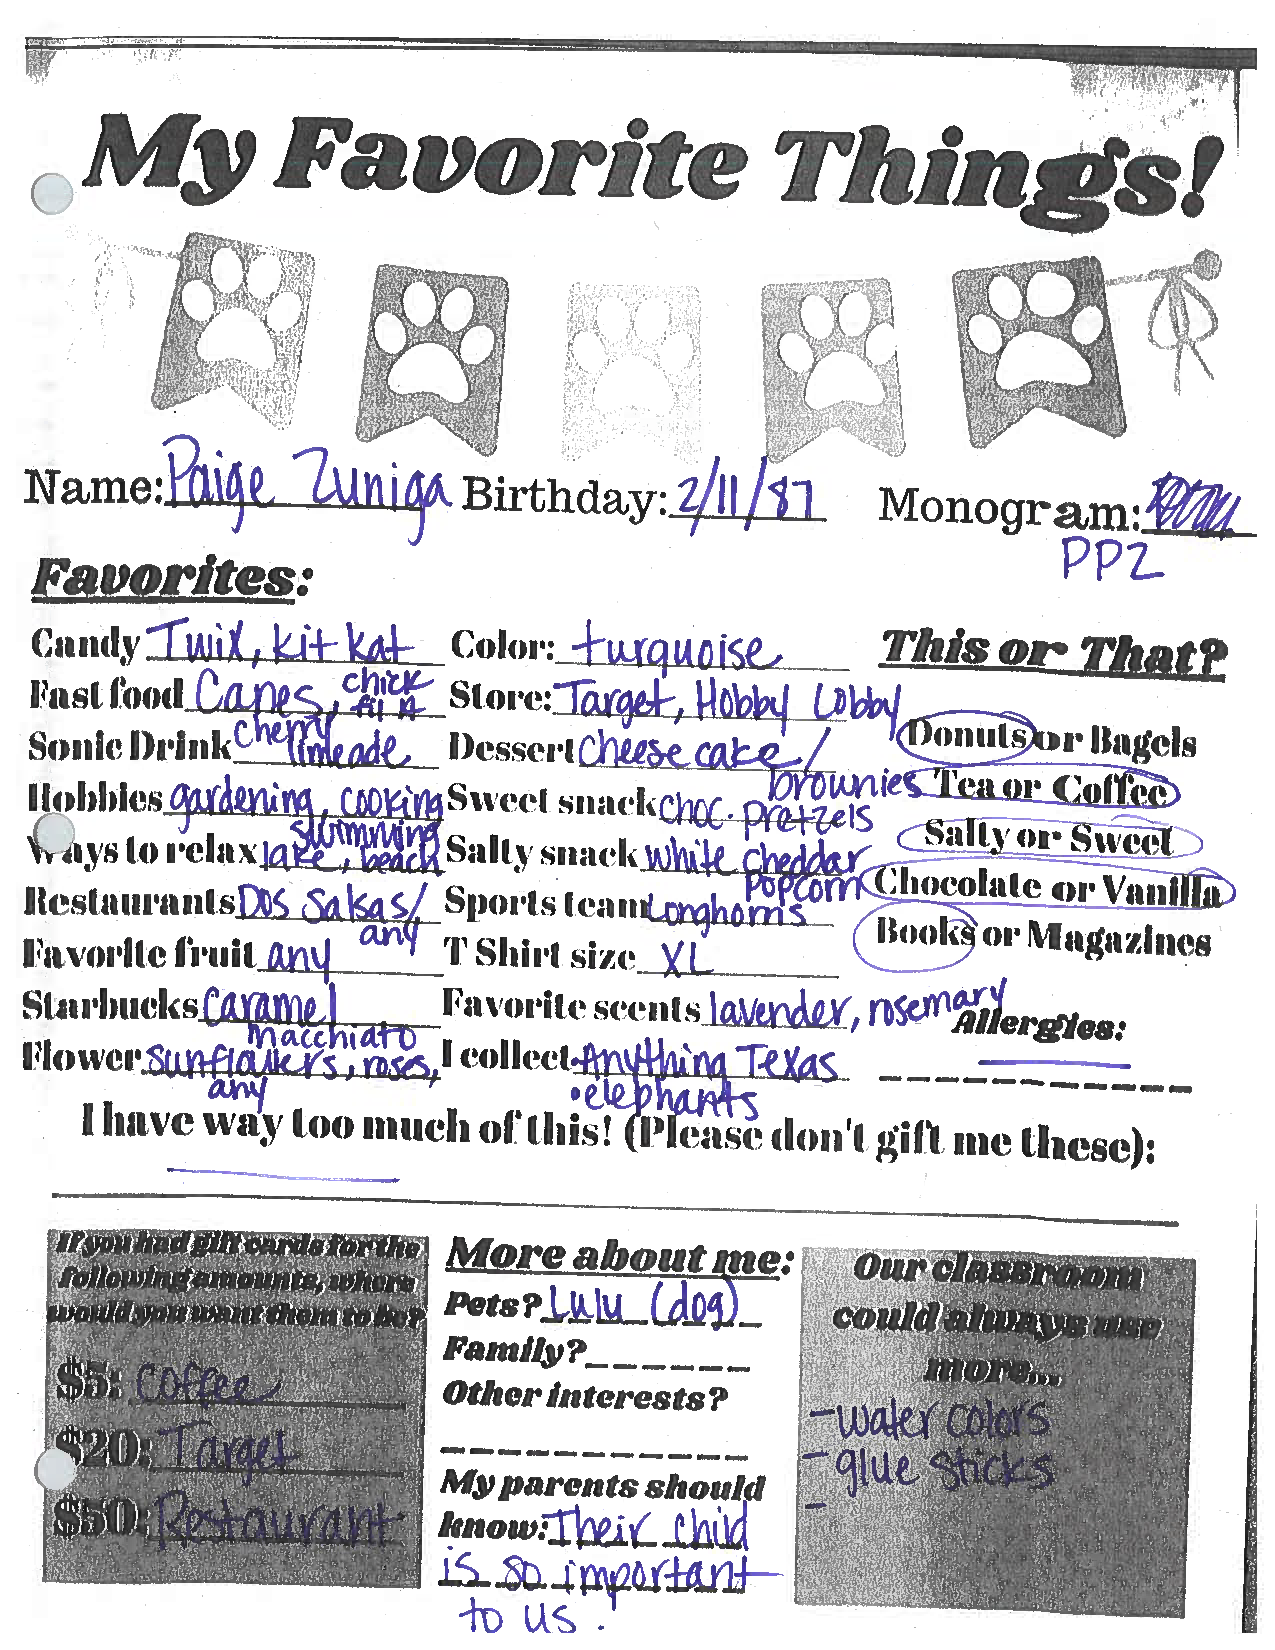 My Favorite Things!
Name: Paige Zuniga Birthday: 2/11/87 Monogram:
PPZ
Favorites:
Candy Twix, kit kat Color: turquoise This or That?
Fast food Canes, chick fil A Store: Target, Hobby Lobby
Donuts or Bagels
Sonic Drink cherry limeade Dessert cheesecake/ brownies
Tea or Coffee
Hobbies gardening, cooking Sweet snack choc. pretzels
swimming
Salty or Sweet
Ways to relax lake, beach Salty snack white cheddar popcorn
Chocolate or Vanilla
Restaurants Dos Salsas/ any Sports team Longhorns
Books or Magazines
Favorite fruit any T Shirt size XL
Starbucks caramel macchiato Favorite scents lavender, rosemary
Allergies:
Flower sunflowers, roses, any I collect Anything Texas
•elephants
I have way too much of this! (Please don't gift me these):
If you had gift cards for the
following amounts, where
would you want them to be?
$5: coffee
$20: Target
$50: Restaurant
More about me:
Pets? Lulu (dog)
Family?
Other interests?
My parents should
know: Their child
is so important
to us!
Our classroom
could always use
more...
- water colors
- glue sticks
-